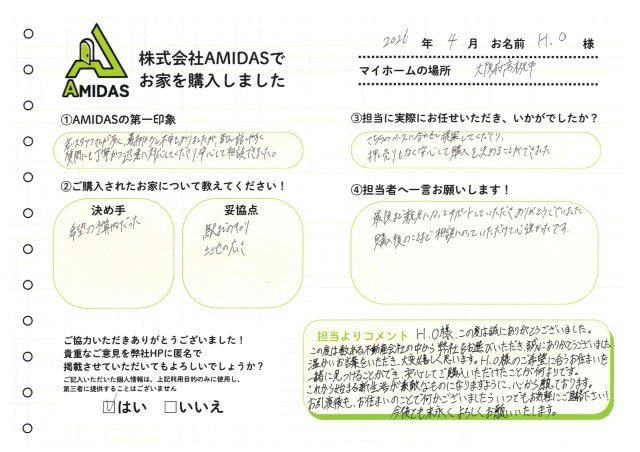 AMIDAS
株式会社AMIDASで
お家を購入しました
2026 年 4 月 お名前 H.O 様
マイホームの場所 大阪府
①AMIDASの第一印象
若いスタッフさんが多く、最初は少し不安もありましたが、皆さん話しやすく
質問にも丁寧かつ迅速に対応してくださり安心して相談できました。
②ご購入されたお家について教えてください！
決め手
希望の予算内だった
妥協点
駅までの
土地の広さ
③担当に実際にお任せいただき、いかがでしたか？
こちらのペースに合わせて提案してくださり、
押し売りもなく安心して購入を決めることができました
④担当者へ一言お願いします！
最後まで親身にサポートしていただきありがとうございました
購入後のことまで相談にのっていただけて心強かったです。
ご協力いただきありがとうございました！
貴重なご意見を弊社HPに匿名で
掲載させていただいてもよろしいでしょうか？
ご記入いただいた個人情報は、上記利用目的のみに使用し、
第三者に提供することはございません
はい いいえ
担当よりコメント H.O様、この度は誠にありがとうございました。
この度は数ある不動産会社の中から弊社をお選びいただき、誠にありがとうございました
温かいお言葉をいただき、大変嬉しく思います。H.O様のご希望に合うお住まいを
一緒に見つけることができ、安心してご購入いただけたことが何よりです。
これから始まる新生活が素敵なものになりますように、心から願っております。
お引渡後も、お住まいのことで何かございましたらいつでもお気軽にご連絡下さい！
今後とも末永くよろしくお願いいたします。